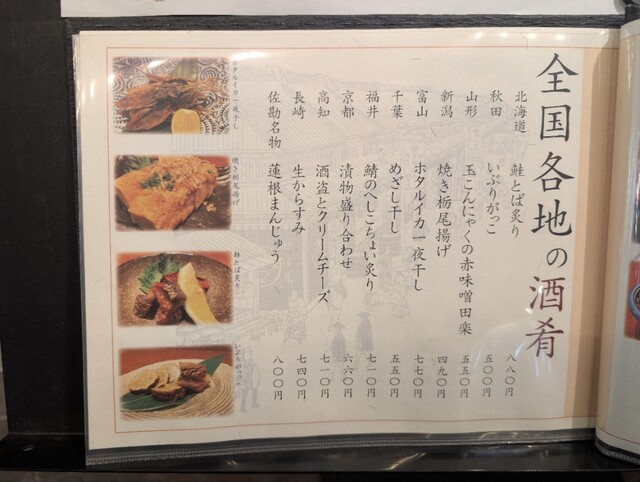 全国各地の酒肴
北海道 鮭とば炙り 八八〇円
秋田 いぶりがっこ 五〇〇円
山形 玉こんにゃくの赤味噌田楽 五五〇円
新潟 焼き栃尾揚げ 四九〇円
富山 ホタルイカ一夜干し 七七〇円
千葉 めざし干し 五五〇円
福井 鯖のへしこちょい炙り 七一〇円
京都 漬物盛り合わせ 六六〇円
高知 酒盗とクリームチーズ 七一〇円
長崎 生からすみ 七四〇円
佐勘名物 蓮根まんじゅう 八〇〇円
ホタルイカ一夜干し
焼き栃尾揚げ
鮭とば炙り
いぶりがっこ